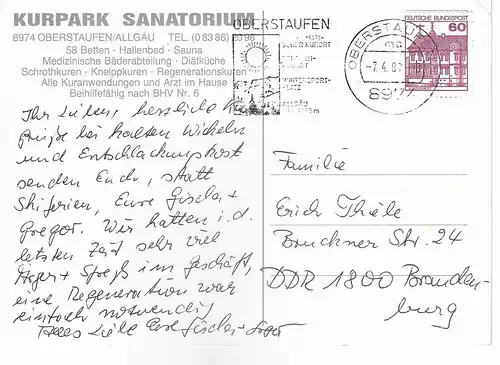 KURPARK SANATORIUM
8974 OBERSTAUFEN/ALLGÄU TEL. (0 83 86) 20 98
58 Betten · Hallenbad · Sauna
Medizinische Bäderabteilung · Diätküche
Schrothkuren · Kneippkuren · Regenerationskuren
Alle Kuranwendungen und Arzt im Hause
Beihilfefähig nach BHV Nr. 6
Ihr Lieben, herzliche
Grüße bei kalten Wickeln
und Entschlackungskost
senden Euch, statt
Skiferien, Eure Gisela +
Gregor. Wir hatten i. d.
letzten Zeit sehr viel
Ärger + Streß im Geschäft,
eine Regeneration war
einfach notwendig!
Alles Liebe Eure Gisela + Gregor
OBERSTAUFEN
OBERSTAUFEN
8974
DEUTSCHE BUNDESPOST
60
Familie
Erich Thiele
Bruckner Str. 24
DDR 1800 Branden-
burg